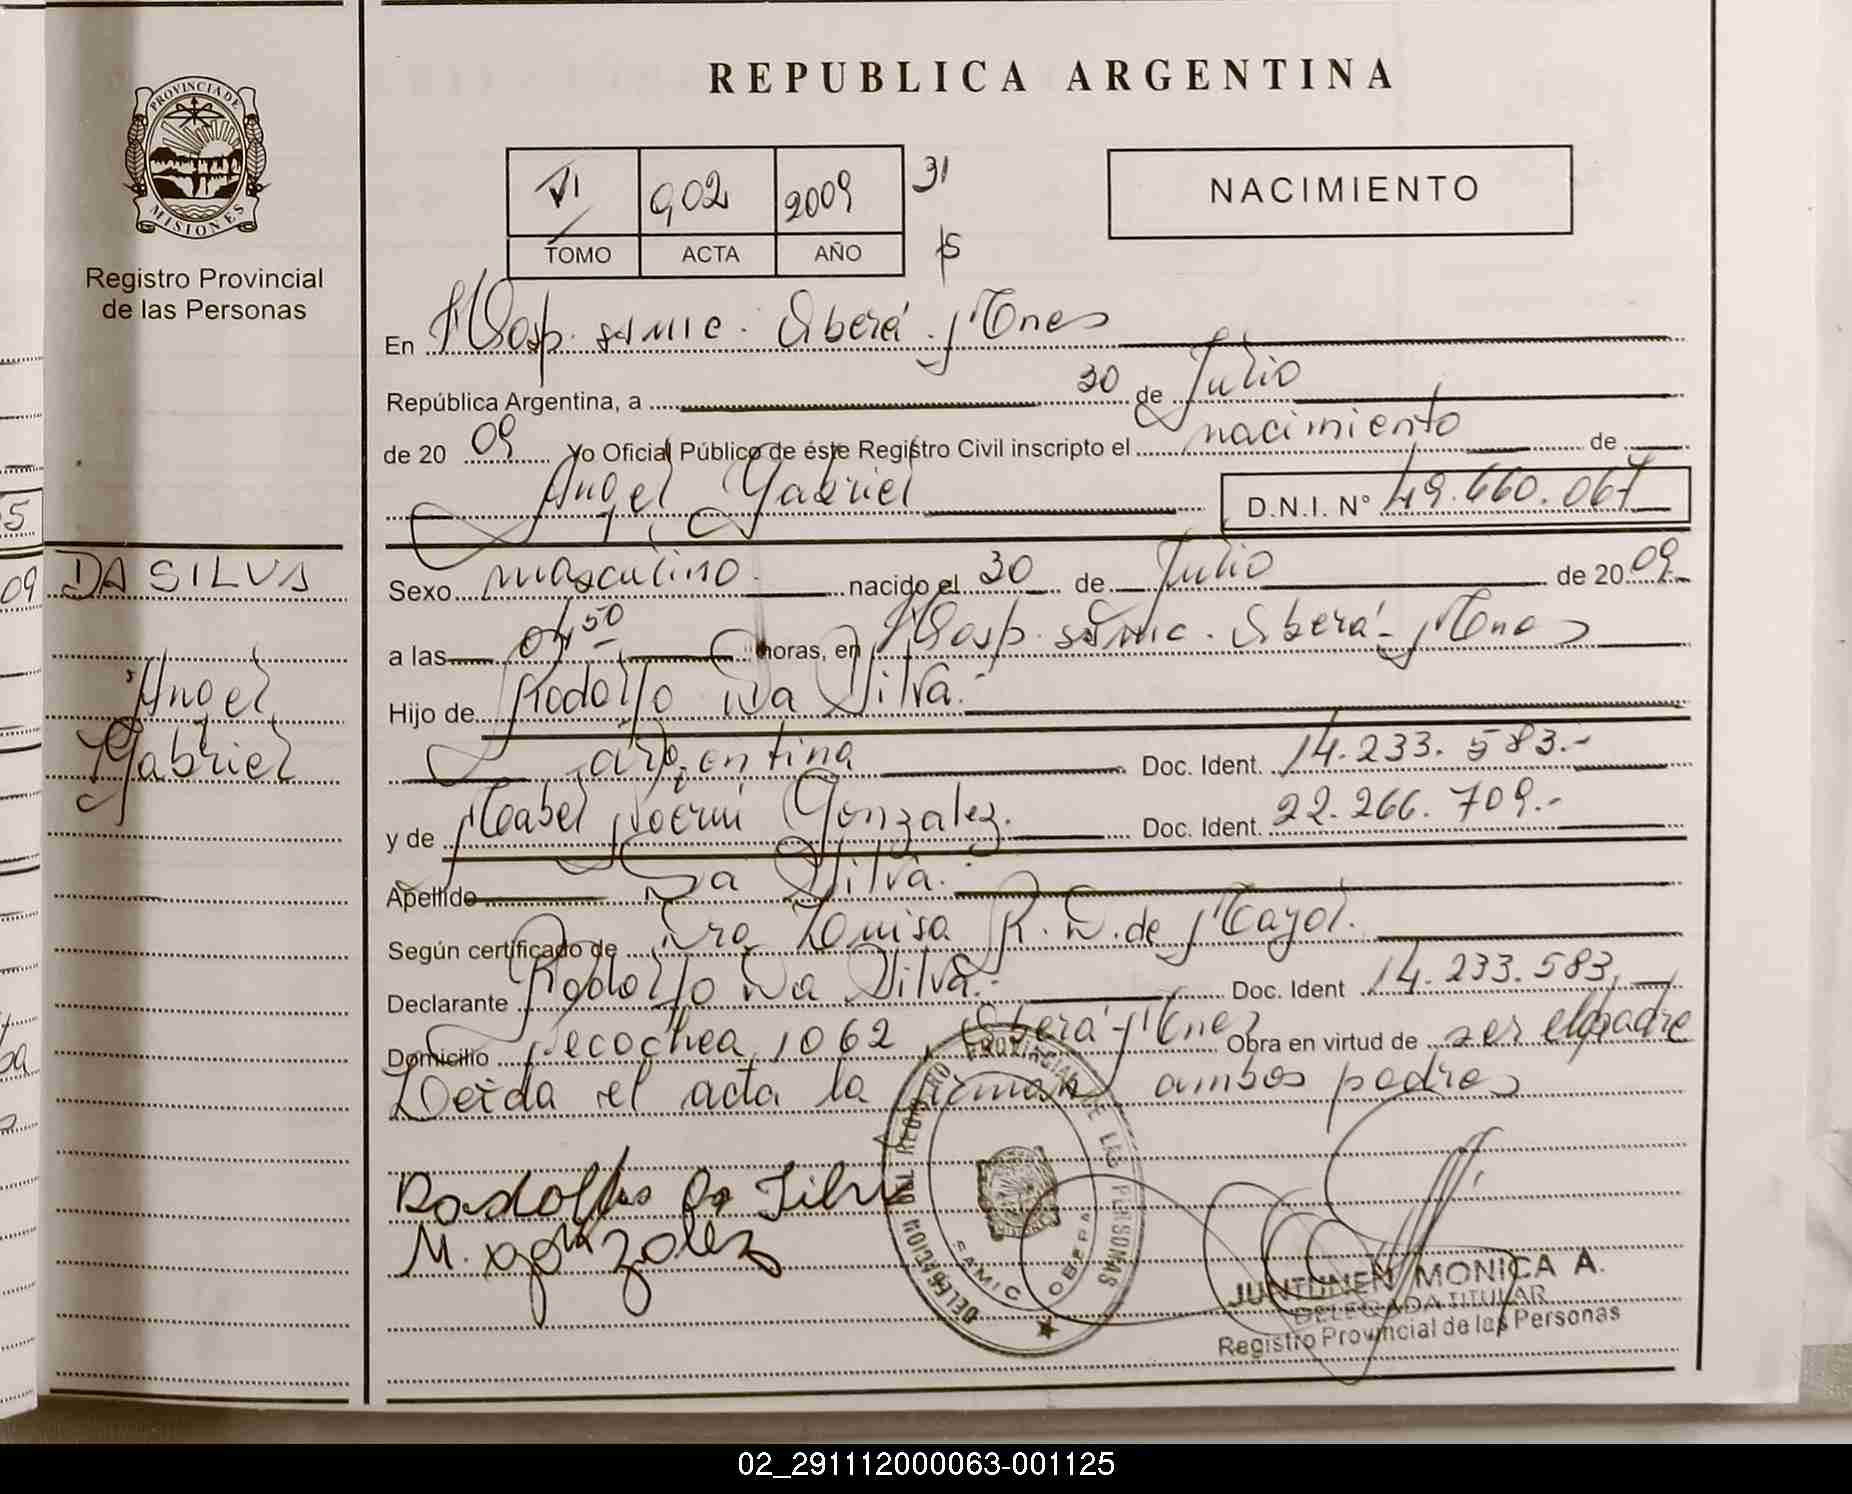 REPUBLICA ARGENTINA
PROVINCIA DE MISIONES
Registro Provincial
de las Personas
VI 902 2009 31
TOMO ACTA AÑO
NACIMIENTO
En Hosp. samic. Oberá. Mnes
República Argentina, a 30 de Julio
de 20 09 Yo Oficial Público de éste Registro Civil inscripto el nacimiento de
Angel Gabriel D.N.I. N° 49.660.067
DA SILVA
Angel
Gabriel
Sexo masculino. nacido el 30 de Julio de 20 09
a las 04,50 horas, en Hosp. samic. Oberá - Mnes
Hijo de Rodolfo Da Silva.-
argentina Doc. Ident. 14.233.583.-
y de Mabel Noemi Gonzalez. Doc. Ident. 22.266.709.-
Apellido Da Silva.
Según certificado de Dra Louisa R. D. de Mayol.
Declarante Rodolfo Da Silva.- Doc. Ident 14.233.583,
Domicilio Necochea 1062, Oberá - Mnes Obra en virtud de ser el padre
Leida el acta la firman ambos padres
Rodolfo Da Silva
M. gonzalez
DELEGACION DEL REGISTRO PROVINCIAL DE LAS PERSONAS
SAMIC OBERA
JUNTUNEN MONICA A.
DELEGADA TITULAR
Registro Provincial de las Personas
02_291112000063-001125